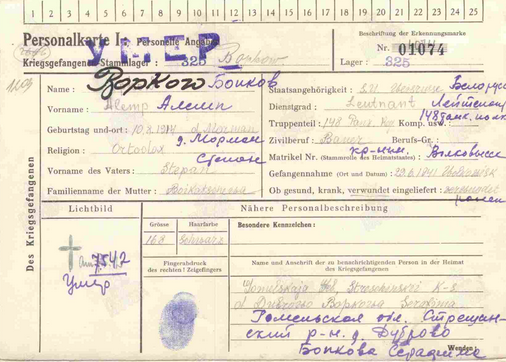 1 2 3 4 5 6 7 8 9 10 11 12 13 14 15 16 17 18 19 20 21 22 23 24 25
Personalkarte I: Personelle Angaben
УМЕР
Kriegsgefangenen-Stammlager: 325 Borkow
Beschriftung der Erkennungsmarke
Nr. 01074
Lager: 325
Des Kriegsgefangenen
Name: Борков
Vorname:
Geburtstag und -ort: 10.8.1914 d.
Religion: Ortodox
Vorname des Vaters: Stepan Степан
Familienname der Mutter:
Staatsangehörigkeit: Белорус
Dienstgrad: Leutnant Лейтенант
Truppenteil: 148 Komp. usw.: 148 танк. полк
Zivilberuf: Bauer Berufs-Gr.: кр-нин
Matrikel Nr. (Stammrolle des Heimatstaates) Волковысск
Gefangennahme (Ort und Datum): 29.6.1941
Ob gesund, krank, verwundet eingeliefert: ранен
Lichtbild
Nähere Personalbeschreibung
Grösse
168
Haarfarbe
Schwarz
Besondere Kennzeichen:
Fingerabdruck
des rechten ! Zeigefingers
† am 7.5.42
Умер
Name und Anschrift der zu benachrichtigenden Person in der Heimat
des Kriegsgefangenen
d Dubrowo Borkowa Serafima
Гомельская обл. Стрешин-
ский р-н. д. Дуброво
Боркова Серафима
Wenden!